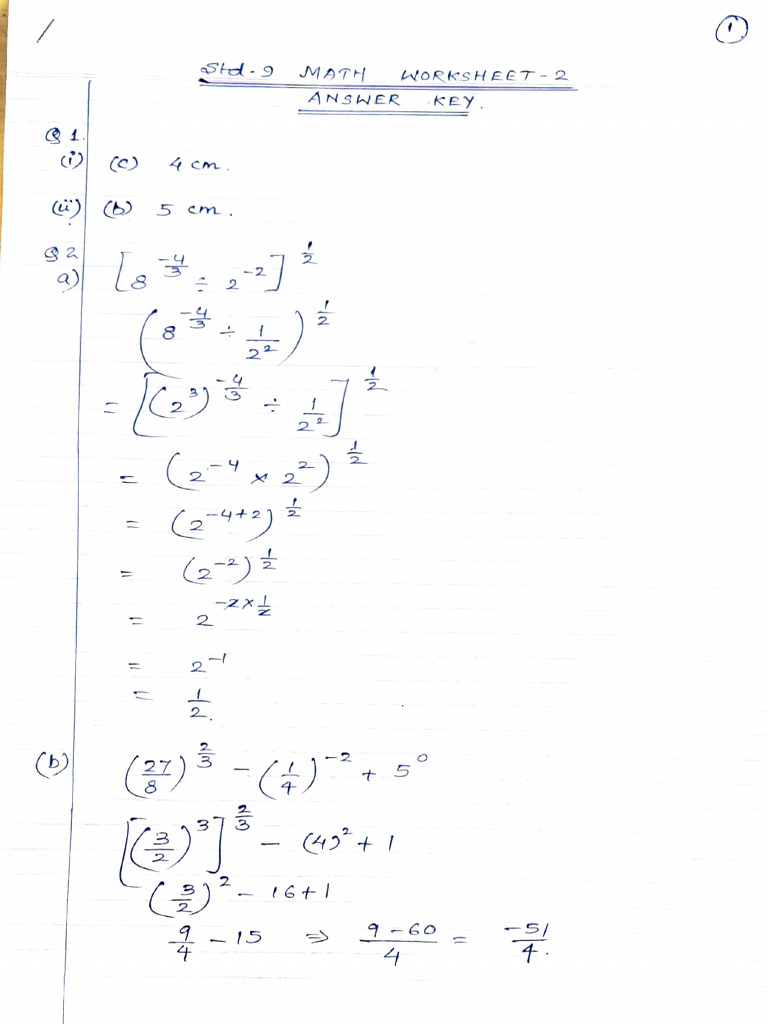 / ①
Std-9 MATH WORKSHEET-2
ANSWER KEY.
Q1.
(i) (c) 4 cm.
(ii) (b) 5 cm.
Q2
a) [8^(-4/3) ÷ 2^(-2)]^(1/2)
(8^(-4/3) ÷ 1/2^2)^(1/2)
= [(2^3)^(-4/3) ÷ 1/2^2]^(1/2)
= (2^(-4) × 2^2)^(1/2)
= (2^(-4+2))^(1/2)
= (2^(-2))^(1/2)
= 2^(-2×1/2)
= 2^(-1)
= 1/2.
(b) (27/8)^(2/3) - (1/4)^(-2) + 5^0
[(3/2)^3]^(2/3) - (4)^2 + 1
(3/2)^2 - 16+1
9/4 - 15 ⇒ (9-60)/4 = -51/4.